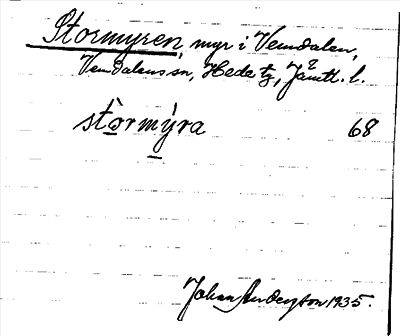 Stormyren, myr i Vemdalen,
Vemdalens sn, Hede tg, Jämtl. l.
stòrmýra 68
Johan Anderson 1935.